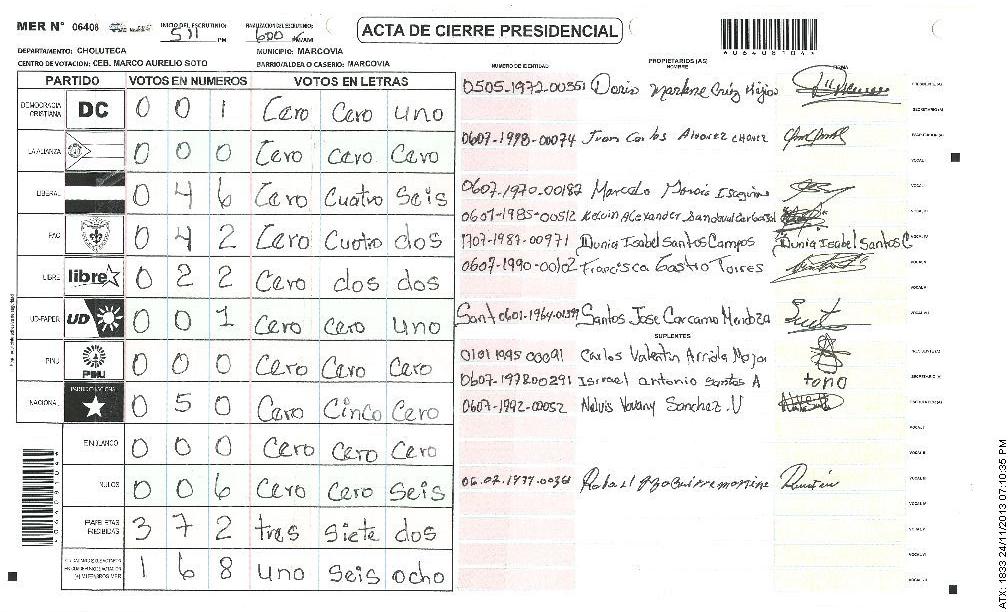 MER N° 06408 INICIO DEL ESCRUTINIO: 511 PM 600 ACTA DE CIERRE PRESIDENCIAL
06408104
DEPARTAMENTO: CHOLUTECA MUNICIPIO: MARCOVIA
CENTRO DE VOTACION: CEB. MARCO AURELIO SOTO BARRIO/ALDEA O CASERIO: MARCOVIA
NUMERO DE IDENTIDAD PROPIETARIOS (AS) NOMBRE FIRMA
PARTIDO VOTOS EN NUMEROS VOTOS EN LETRAS
DEMOCRACIA CRISTIANA DC 0 0 1 Cero Cero uno
LA ALIANZA 0 0 0 Cero Cero Cero
LIBERAL 0 4 6 Cero Cuatro Seis
PAC 0 4 2 Cero Cuatro dos
LIBRE libre 0 2 2 Cero dos dos
UD-FAPER UD 0 0 1 Cero Cero uno
PINU PINU 0 0 0 Cero Cero Cero
NACIONAL 0 5 0 Cero Cinco Cero
EN BLANCO 0 0 0 Cero Cero Cero
NULOS 0 0 6 Cero Cero Seis
PAPELETAS RECIBIDAS 3 7 2 tres siete dos
1 6 8 uno seis ocho
0505-1972-00351 Doris Marlene Cruz
0607-1998-00074 Juan Carlos Alvarez chavez
0607-1970-00182 Marcelo
0607-1985-00512 Kelvin Alexander Sandoval
1707-1987-00971 Dunia Isabel Santos Campos Dunia Isabel Santos C
0607-1990-00102 Francisca Castro Torres
0601-1964-01599 Santos Jose Carcamo Mendoza
SUPLENTES
0101 1995 00091 Carlos Valentin Arriola
0607-1978 00291 Isrrael antonio santos A tono
0607-1992-00052 Nelvis Yovany Sanchez. V
ATX: 1833 24/11/2013 07:10:35 PM